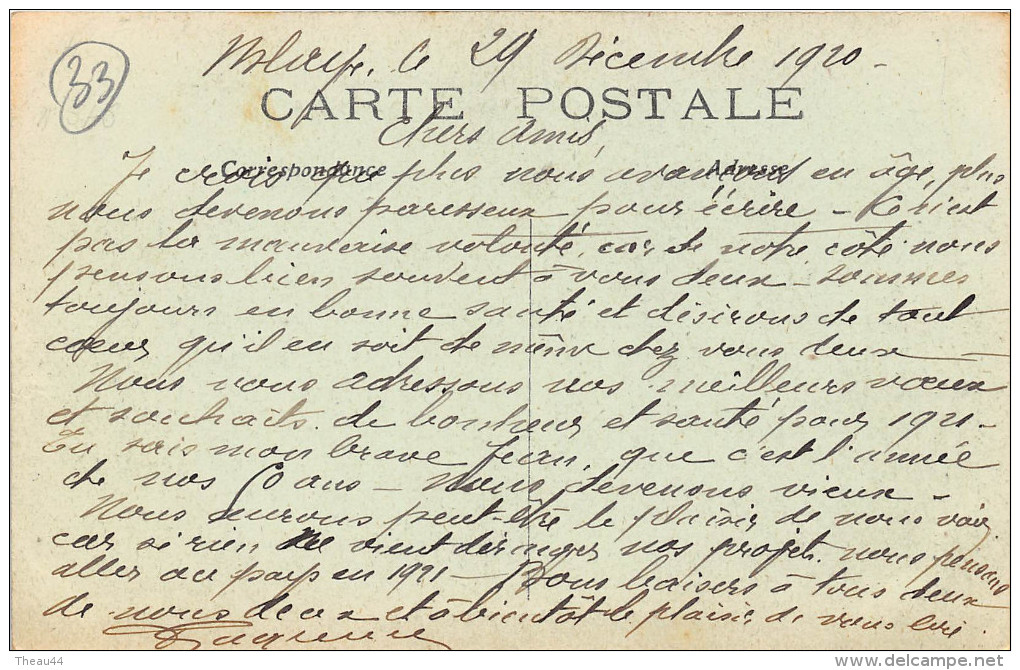 33
Blaye, le 29 Décembre 1920 -
CARTE POSTALE
Chers Amis,
Correspondance Adresse
Je crois que plus nous avançons en âge, plus
nous devenons paresseux pour écrire - Ce n'est
pas la mauvaise volonté, car de notre côté nous
pensons bien souvent à vous deux - sommes
toujours en bonne santé et désirons de tout
coeur qu'il en soit de même chez vous deux -
Nous nous adressons nos meilleurs voeux
et souhaits de bonheur et santé pour 1921 -
Tu sais mon brave Jean, que c'est l'année
de nos 50 ans - Nous devenons vieux -
Nous aurons peut-être le plaisir de nous voir
car si rien ne vient déranger nos projets nous pensons
aller au pays en 1921 - Bons baisers à tous deux
de nous deux et à bientôt le plaisir de vous lire.
Theau44
www.delcampe.net